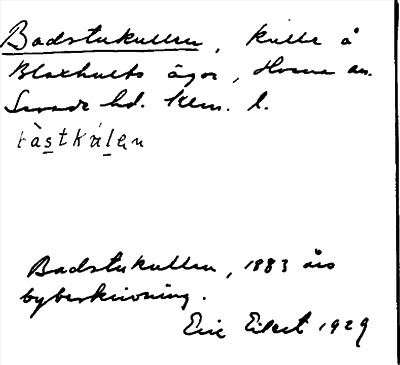 Badstukullen, kulle å
Bloxhults ägor, Horna sn.
hd. Klm. l.
bàstkálen
Badstukullen, 1883 års
bybeskrivning.
Eric Eckert 1929